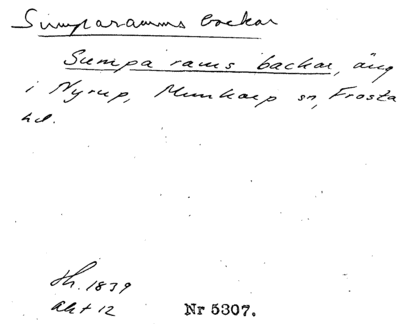 Sumparamms backar
Sumpa rams backar, äng
i Nyrup, Munkarp sn, Frosta
hd.
Sh. 1839
akt 12
Nr 5307.